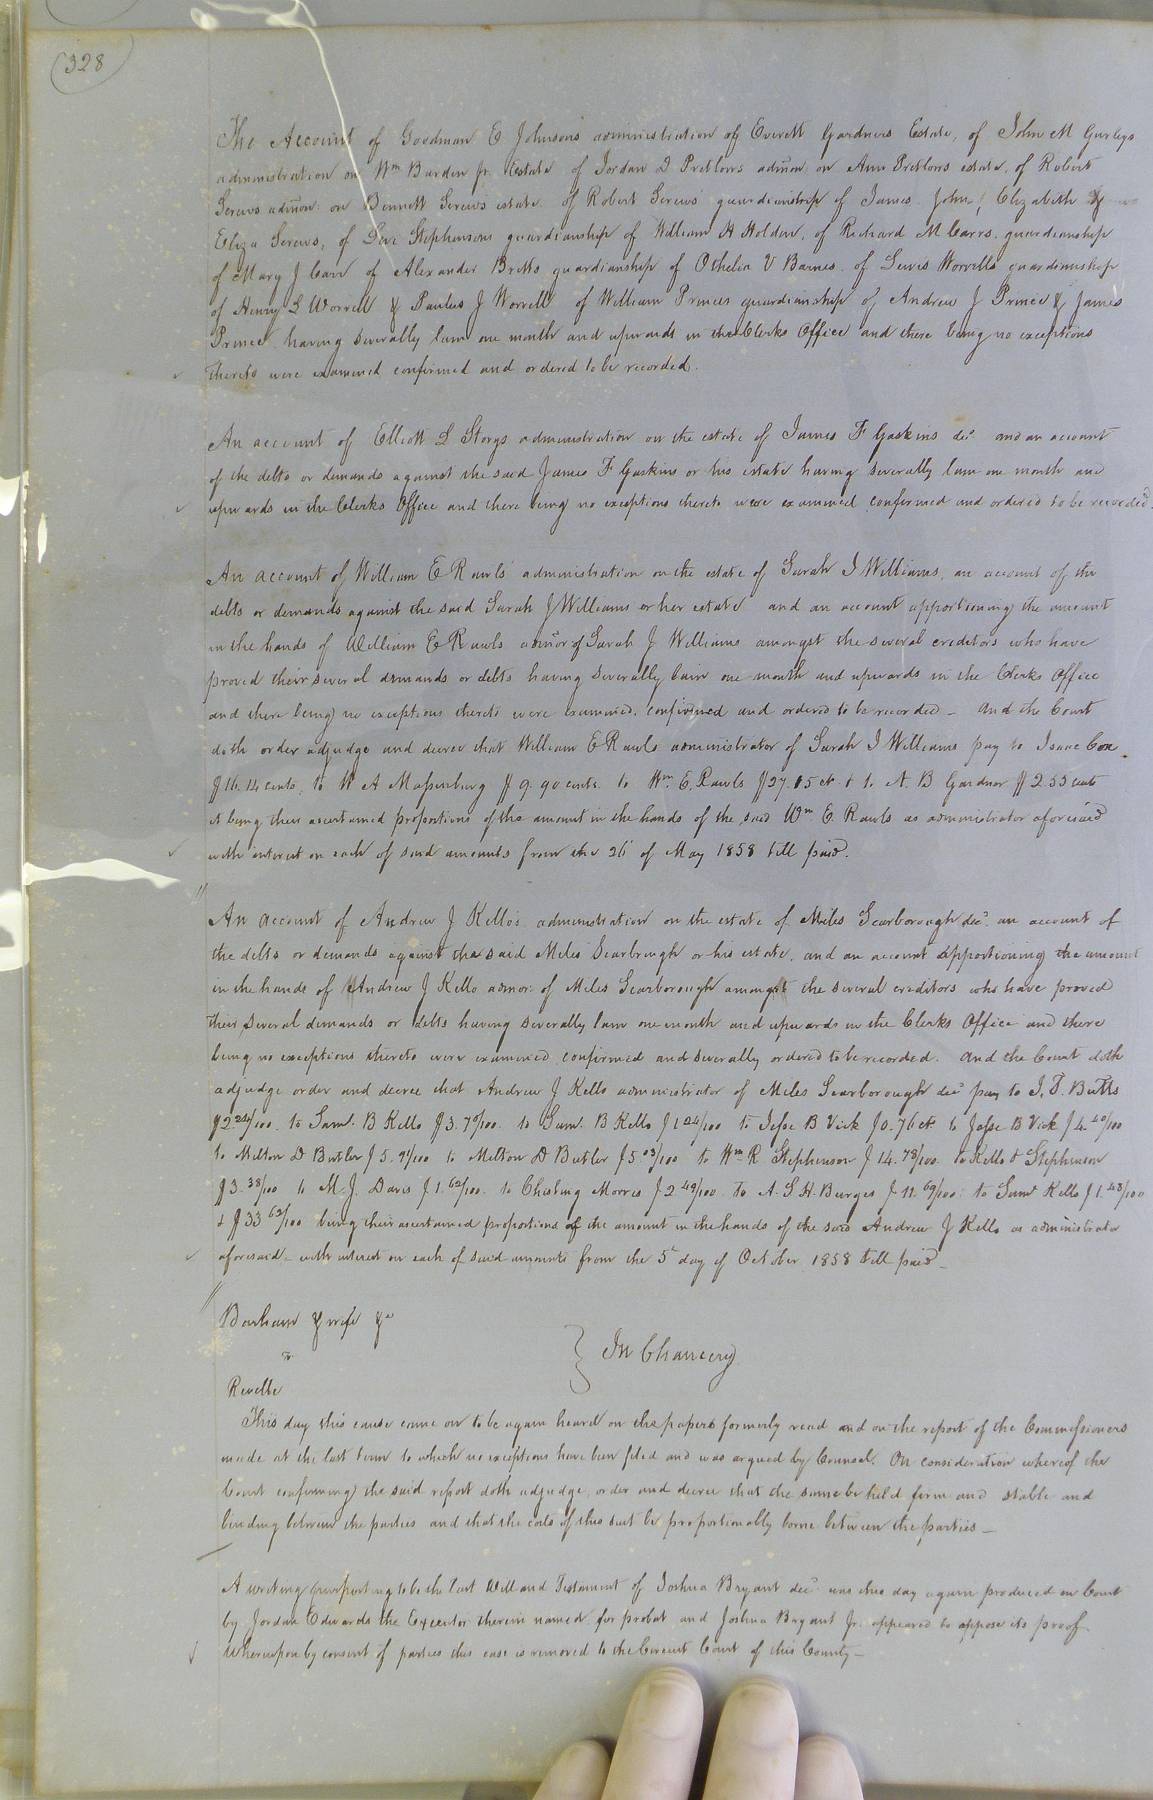 (328)
The Account of Goodman E Johnsons administration of Everett Gardners Estate, of John M Gurleys
administration on Wm Barden Jr. Estate of Jordan D Pretlows admōn on Ann Pretlows estate, of Robert
Screws admōn: on Bennett Screws estate of Robert Screws guardianship of James John, Elizabeth &
Eliza Screws, of Levi Stephensons guardianship of William H Holden, of Richard M Carrs, guardianship
of Mary J Carr of Alexander Britts guardianship of Othelia V Barnes. of Lewis Worrells guardianship
of Henry L Worrell & Paulus J Worrell of William Princes guardianship of Andrew J Prince & James
Prince having severally lain one month and upwards in the Clerks Office and there being no exceptions
thereto were examined confirmed and ordered to be recorded.
An account of Elliott L Storys administration on the estate of James F Gaskins decd and an account
of the debts or demands against the said James F Gaskins or his estate having severally lain one month and
upwards in the Clerks Office and there being no exceptions thereto were examined confirmed and ordered to be recorded
An account of William E Rawls administration on the estate of Sarah J Williams, an account of the
debts or demands against the said Sarah J Williams or her estate and an account apportioning the amount
in the hands of William E Rawls admōr of Sarah J Williams amongst the several creditors who have
proved their several demands or debts having severally lain one month and upwards in the Clerks Office
and there being no exceptions thereto were examined. confirmed and ordered to be recorded – And the Court
doth order adjudge and decree that William E Rawls administrator of Sarah J Williams pay to Isaac Cox
$16.14 cents, to W A Massenburg $9.90 cents. to Wm. E. Rawls $27.15 ct & to A B Gardner $2 55 cents
it being their ascertained proportions of the amount in the hands of the said Wm E. Rawls as administrator aforesaid
with interest on each of said amounts from the 26 of May 1858 till paid.
An account of Andrew J Kello's administration on the estate of Miles Scarborough decd an account of
the debts or demands against the said Miles Scarbrough or his estate, and an account apportioning the amount
in the hands of Andrew J Kello admor: of Miles Scarborough amongst the several creditors who have proved
their several demands or debts having severally lain one month and upwards in the Clerks Office and there
being no exceptions thereto were examined confirmed and severally ordered to be recorded. And the Court doth
adjudge order and decree that Andrew J Kello administrator of Miles Scarborough decd pay to J. T. Butts
$2 24/100. to Saml. B Kello $3.70/100. to Saml. B Kello $1 24/100 to Jesse B Vick $0.76 ct to Jesse B Vick $4.40/100
to Melton D Butler $5.91/100 to Melton D Butler $5 03/100 to Wm R Stephenson $14.78/100. to Kello & Stephenson
$3.38/100 to M. J. Davis $1.62/100. to Chasling Morris $2 49/100 to A. S. H. Burges $11.69/100: to Saml Kello $1.48/100
& $33 63/100 being their ascertained proportions of the amount in the hands of the said Andrew J Kello as administrator
aforesaid – with interest on each of said amounts from the 5th day of October 1858 till paid –
Barham & wife &c
vs
} In Chancery
Revelle
This day this cause came on to be again heard on the papers formerly read and on the report of the Commissioners
made at the last term to which no exceptions have been filed and was argued by Counsel. On consideration whereof the
Court confirming the said report doth adjudge, order and decree that the same be held firm and stable and
binding between the parties and that the costs of this suit be proportionally borne between the parties –
A writing purporting to be the last Will and Testament of Joshua Bryant decd was this day again produced in Court
by Jordan Edwards the Executor therein named for probat and Joshua Bryant Jr. appeared to oppose its proof
Whereupon by consent of parties this case is removed to the Circuit Court of this County –